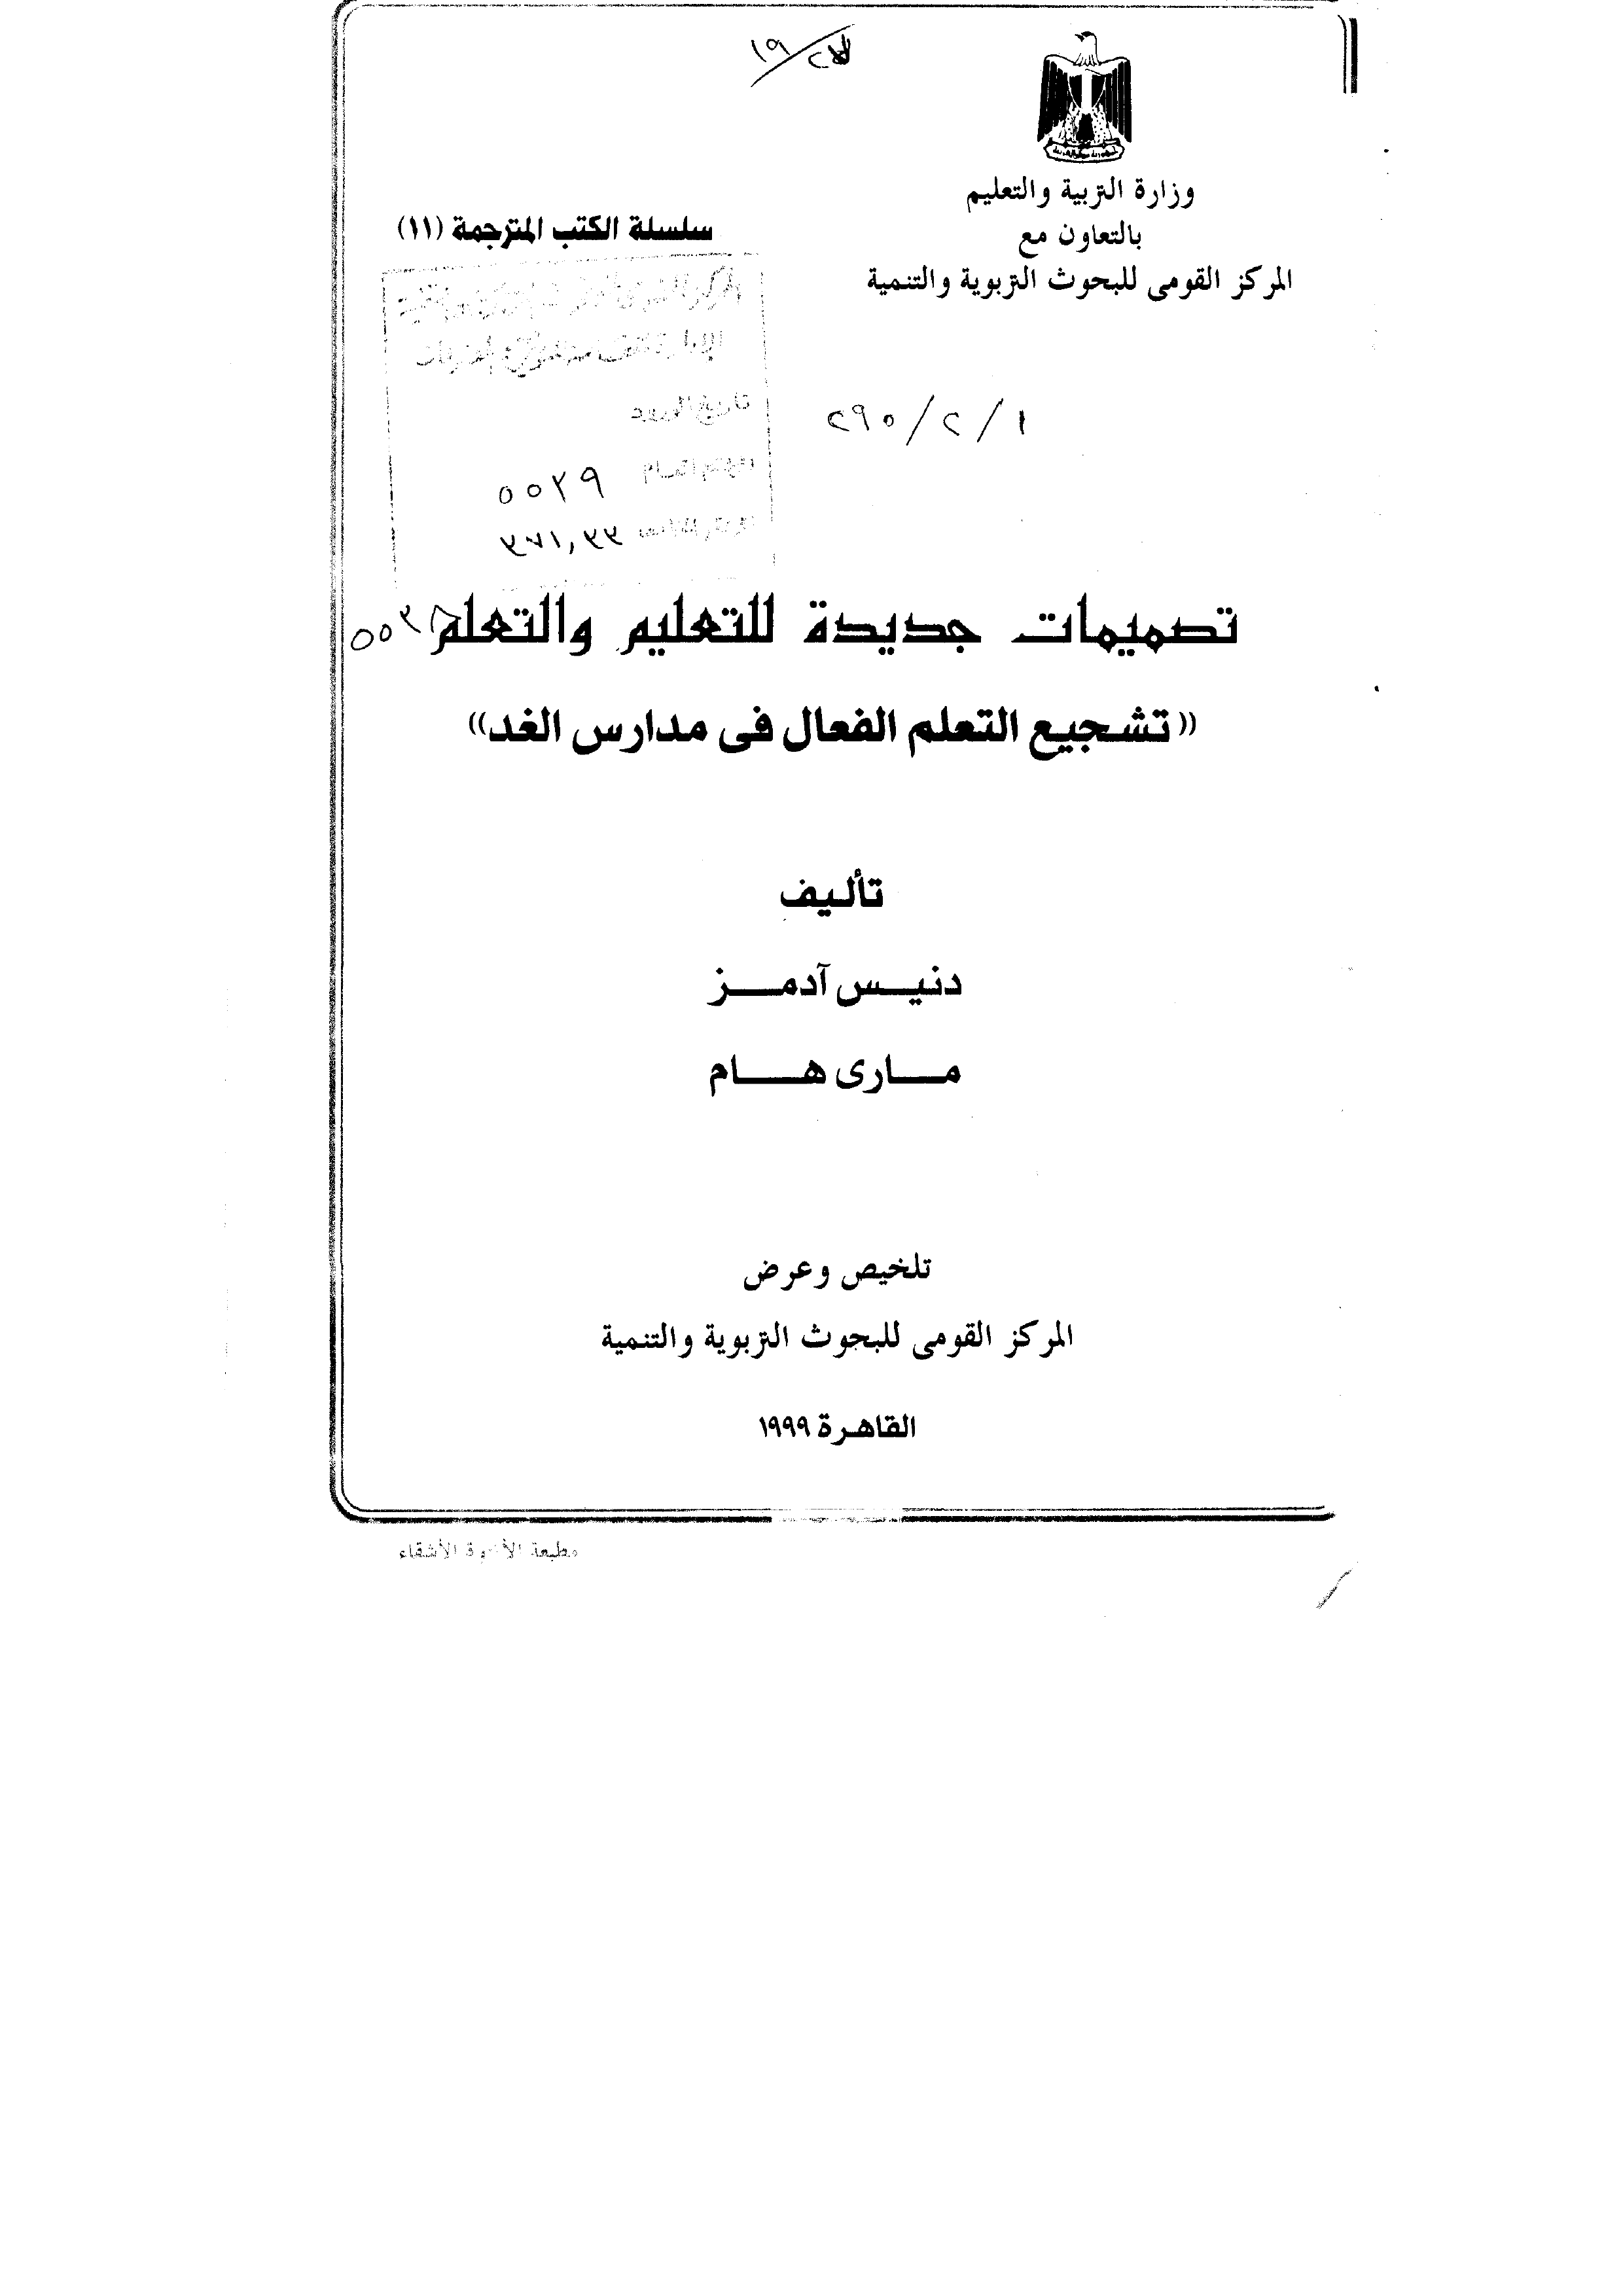 وزارة التربية والتعليم
بالتعاون مع
المركز القومى للبحوث التربوية والتنمية
سلسلة الكتب المترجمة (١١)
١/٢/٥٩٢
٥٥٢٩
٣٧١,٣٣
تصميمات جديدة للتعليم والتعلم
«تشجيع التعلم الفعال فى مدارس الغد»
تأليف
دنيس آدمز
مارى هام
تلخيص وعرض
المركز القومى للبحوث التربوية والتنمية
القاهرة ١٩٩٩
مطبعة الأخوة الأشقاء